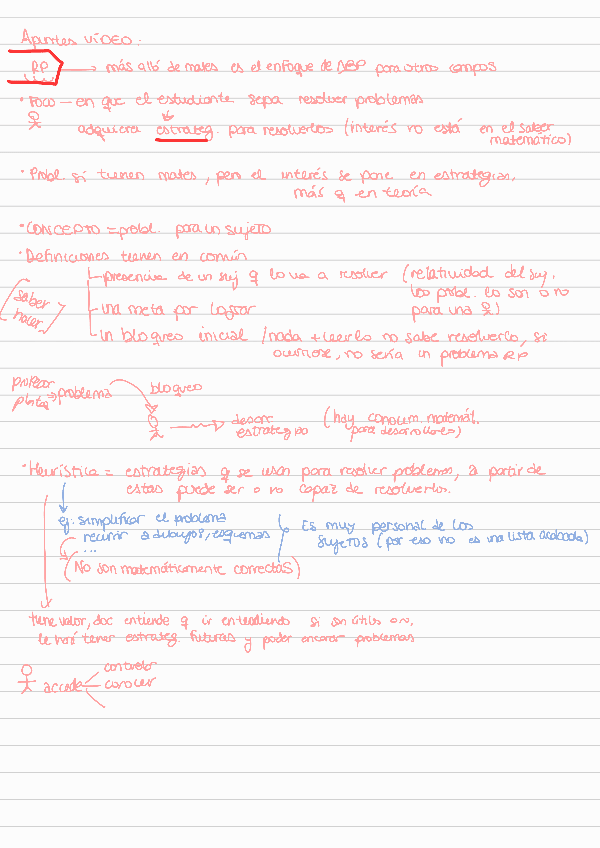 Apuntes VIDEO:
RP → más allá de mates es el enfoque de ABP para otros campos
• Foco — en que el estudiante sepa resolver problemas
adquiera estrateg. para resolverlos (interés no está en el saber
matemático)
• Probl. sí tienen mates, pero el interés se pone en estrategias,
más q en teoría.
• CONCEPTO = probl. para un sujeto
• Definiciones tienen en común
saber hacer,
- presencia de un suj q lo va a resolver (relatividad del suj,
los probl. lo son o no
para una)
- una meta por lograr
- un bloqueo inicial / nada + leerlo no sabe resolverlo, si
ocurriese, no sería un problema RP
problema bloqueo
→ desarr. estrategias (hay conocim. matemát.
para desarrollo)
• Heurística = estrategias q se usan para resolver problemas, a partir de
estas puede ser o no capaz de resolverlos.
ej: simplificar el problema
recurrir a dibujos, esquemas
...
Es muy personal de los
sujetos (por eso no es una lista acabada)
(No son matemáticamente correctas)
tiene valor, doc entiende q ir entendiendo si son útiles o n,
le hará tener estrateg. futuras y poder encarar problemas
accede controlar
conocer